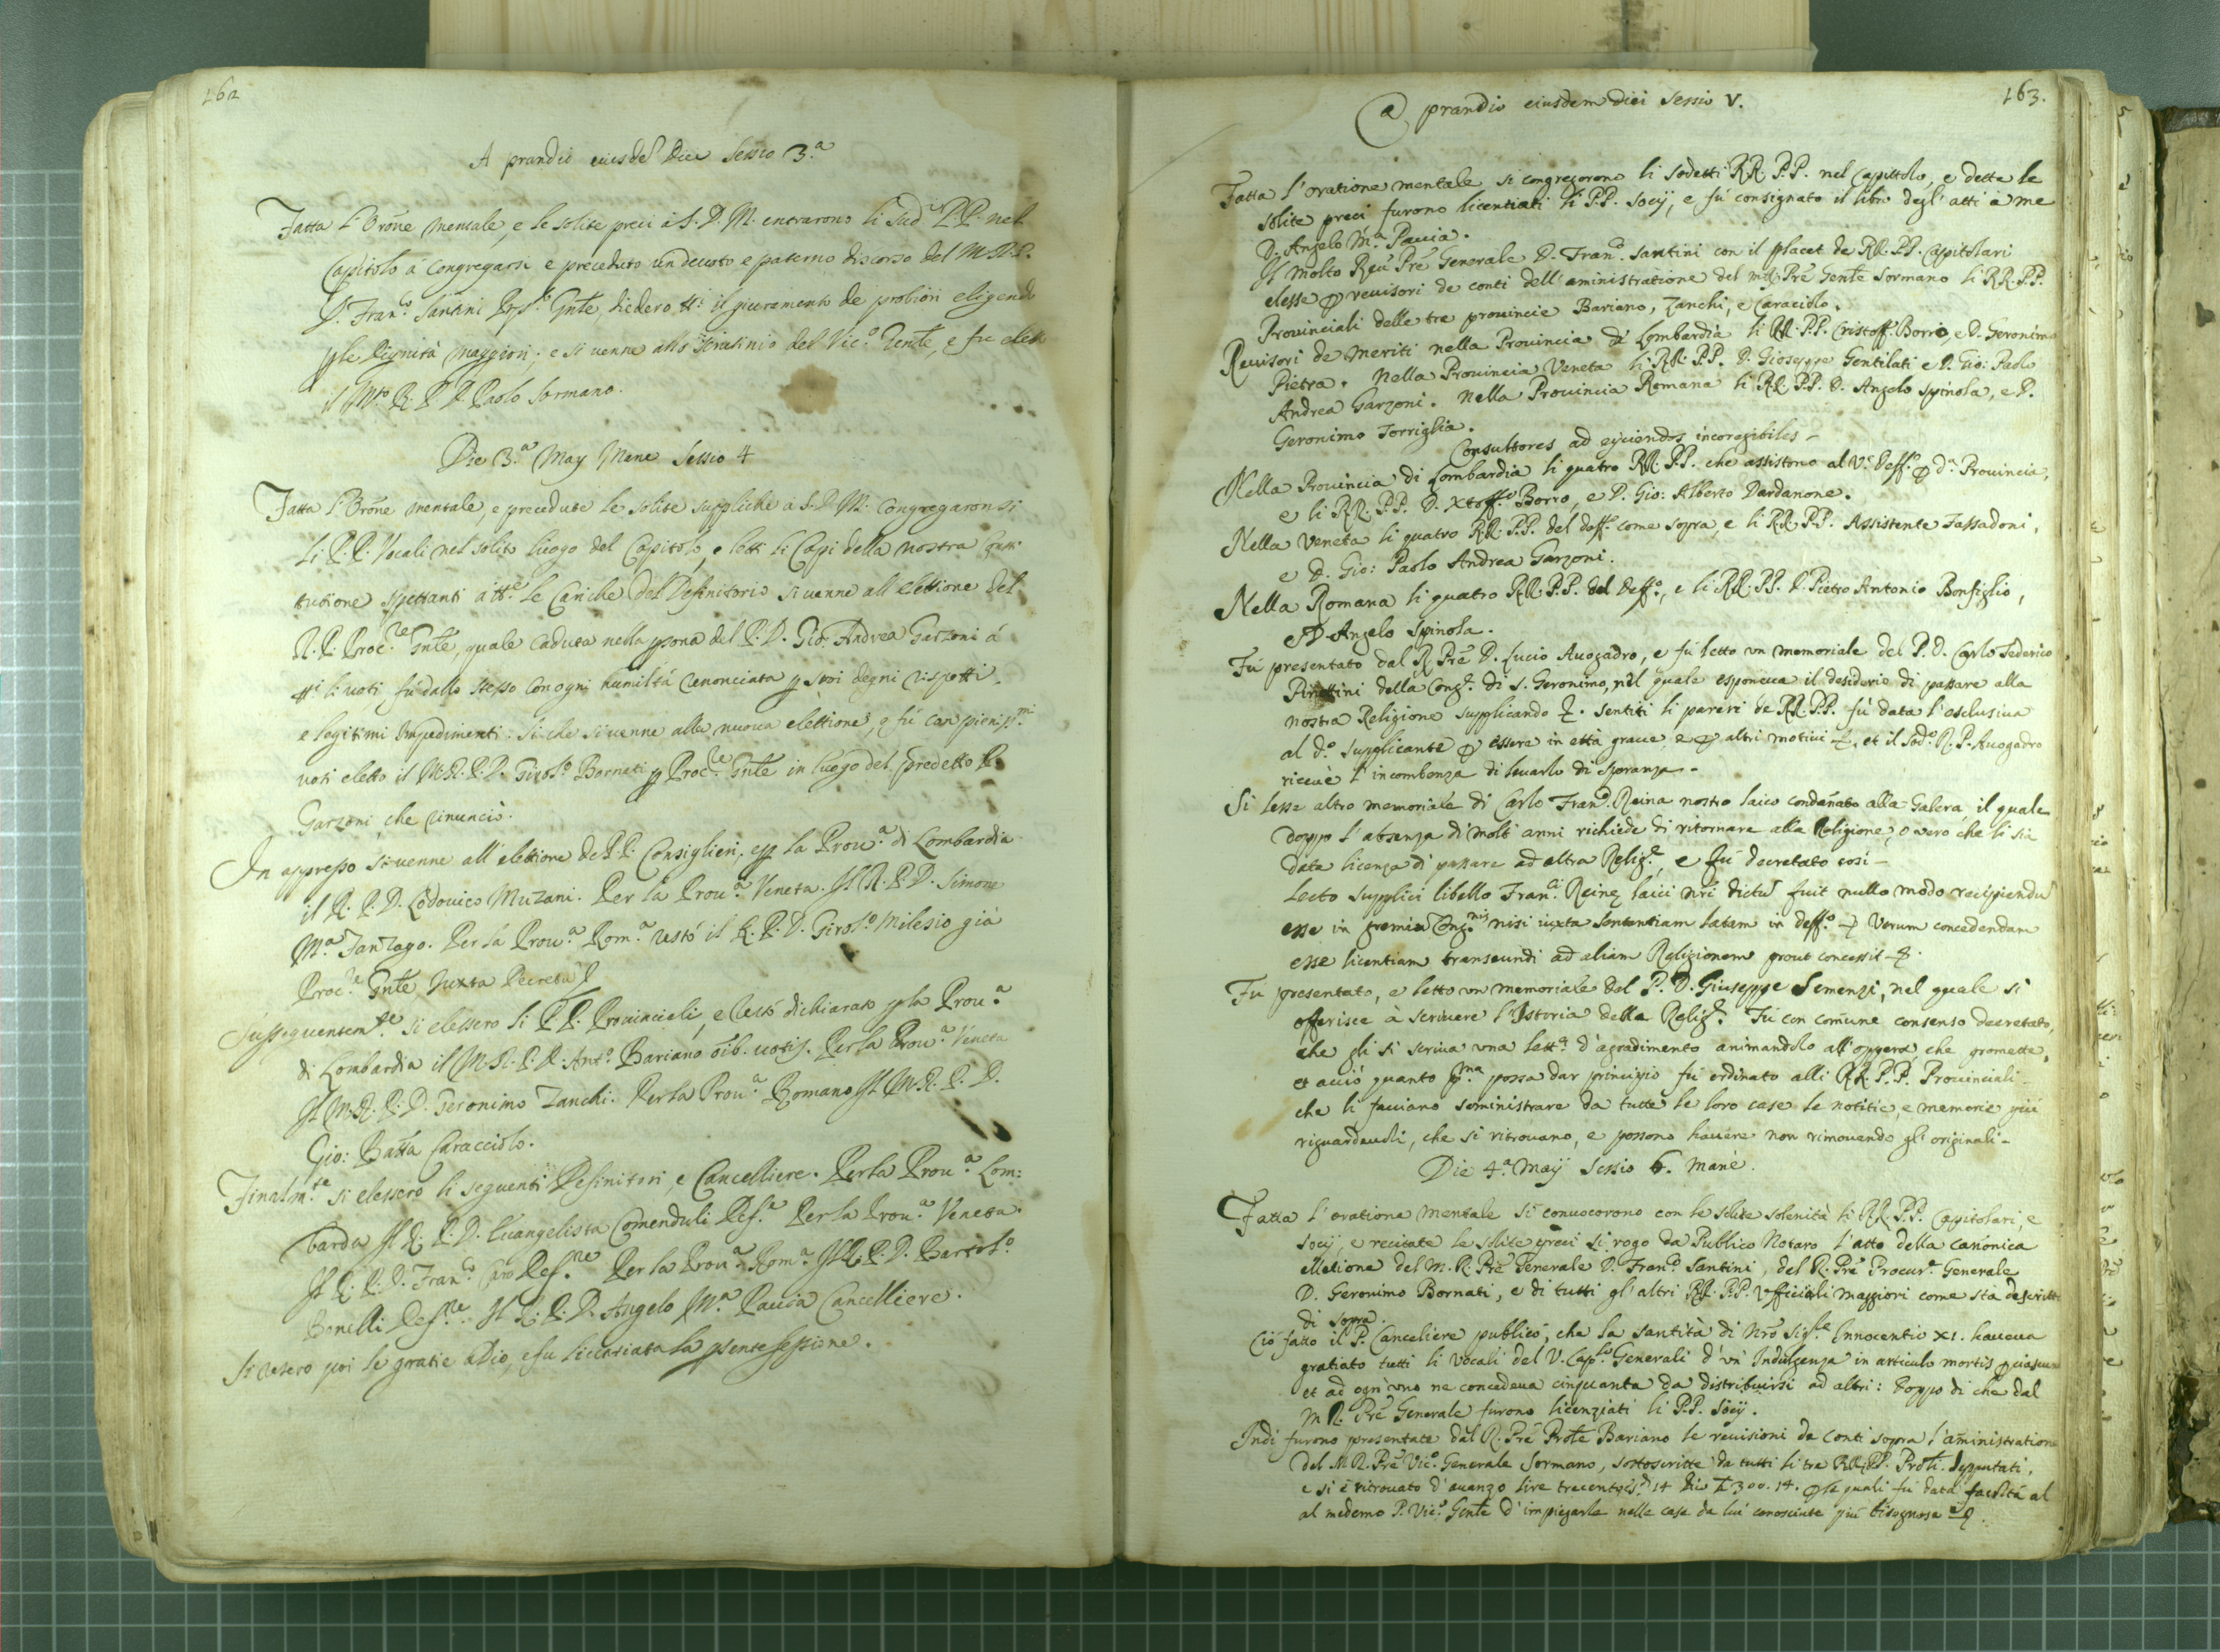 162
A prandio eiusdē Diei Sessio 3.a
Fatta l'Orōne mentale, e le solite preci à S. D. M. entrarono li sud.i P.P. nel
Capitolo à congregarsi e preceduto un devoto e paterno discorso del M. R. P.
D. Fran.co Santini Gnle, diedero tt.i il giuramento de probiori eligendo
ple Dignità maggiori; e si venne allo scrutinio del Vic.o Gente, e fu eletto
il M.to R. P. D. Paolo Sormano.
Die 3.a May Mane Sessio 4
Fatta l'Orōne mentale, e precedute le solite suppliche à S. D. M. congregaronsi
li P. P. Vocali nel solito luogo del Capitolo, e letti li Capi della nostra Consti
tutione spettanti à tt.e le Cariche del Definitorio si venne all'elettione del
R. P. Proc.re Gnle, quale caduta nella psona del P. D. Gio: Andrea Garzoni á
tt.i li voti, fù dallo stesso con ogni humiltà renonciata p suoi degni rispetti,
e legitimi impedimenti: si che si venne alla nuova elettione, e fù con pieniss.mi
voti eletto il M. R. P. D. Girol.o Bornati p Proc.re Gnle in luogo del predetto P.
Garzoni, che rinunciò.
In appresso si venne all'elettione de P.P. Consiglieri, e p la Prov.a di Lombardia
il R. P. D. Lodovico Muzani. Per la Prov.a Veneta. Il R. P. D. Simone
M.a Fanzago. Per la Prov.a Rom.a restò il R. P. D. Girol.o Milesio già
Proc.re Gnle Juxta Decretū
Susseguentem.te si elessero li P. P. Provinciali, e restò dichiarato p la Prov.a
di Lombardia il M. R. P. D. Ant.o Bariano oīb. votis. Per la Prov.a Veneta
Il M. R. P. D. Geronimo Zanchi. Per la Prov.a Romana Il M. R. P. D.
Gio: Batta Caracciolo.
Finalm.te si elessero li seguenti Definitori, e Cancelliere. Per la Prov.a Lom:
barda Il R. P. D. Evangelista Comenduli Def.re Per la Prov.a Veneta.
Il R. P. D. Fran.co Caro Def.re Per la Prov.a Rom.a Il R. P. D. Bartol.o
Bonelli Def.re. Il R. P. D. Angelo M.a Pavia Cancelliere.
Si resero poi le gratie à Dio, e fu licentiata la pnte sessione.
163.
A prandio eiusdem diei Sessio V.
Fatta l'oratione mentale si congregorono li sodetti RR. P.P. nel Capittolo, e dette le
solite preci furono licentiati li P.P. Socij, e fú consignato il libro degl'atti à me
D. Angelo M.a Pavia.
Il Molto Reū Prē Generale D. Fran.co Santini con il placet de RR. PP. Capitolari
elesse p revisori de conti dell'aministratione del m.R. Prē Gente Sormano li RR. PP.
Provinciali delle tre provincie Bariano, Zanchi, e Caraciolo.
Revisori de meriti nella Provincia di Lombardia li RR. P.P. Cristoff. Borro, e D. Geronimo
Pietra. Nella Provincia Veneta li RR. PP. D. Gioseppe Gentilati e D. Gio: Paolo
Andrea Garzoni. Nella Provincia Romana li RR. PP. D. Angelo Spinola, e D.
Geronimo Torriglia.
Consultores ad eijciendos incoregibiles -
Nella Provincia di Lombardia li quatro RR. P.P. che assistono al V.e Deff.o p d.a Provincia,
e li RR. P.P. D. Xtoff.o Borro, e D. Gio: Alberto Dardanone.
Nella Veneta li quatro RR. P.P. del deff.o come sopra, e li RR. PP. Assistente Fassadoni,
e D. Gio: Paolo Andrea Garzoni.
Nella Romana li quatro RR. P.P. del Deff.o, e li RR. PP. D. Pietro Antonio Bonfiglio,
e D. Angelo Spinola.
Fù presentato dal R. Prē D. Lucio Avogadro, e fú letto vn memoriale del P. D. Carlo Federico
della Cong.e di S. Geronimo, nel quale esponeva il desiderio di passare alla
nostra Religione supplicando &. sentiti li pareri de RR. P.P. fù data l'esclusiva
al d.o supplicante p essere in età grave, e p altri motivi &. et il sod.o R. P. Avogadro
ricevè l'incombenza di levarlo di speranza -
Si lesse altro memoriale di Carlo Fran.co Reina nostro laico condānato alla Galera, il quale
doppo l'absenza di molti anni richiede di ritornare alla Religione, o vero che li sia
data licenza di passare ad altra Relig.e, e fú decretato così -
Lecto supplici libello Fran.ci Reinę laici nrī dictū fuit nullo modo recipiendū
esse in gremiū Cong.nis nisi iuxta sententiam latam in deff.o & Verum concedendam
esse licentiam transeundi ad aliam Religionem prout concessit &.
Fù presentato, e letto vn memoriale del P. D. Giuseppe Semenzi, nel quale si
offerisce à scrivere l'Istoria della Relig.e. Fù con comūne consenso decretato,
che gli si scriva vna lett.a d'agradimento animandolo all'oppera, che promette,
et acciò quanto p.ma possa dar principio fù ordinato alli RR. P.P. Provinciali -
che li facciano soministrare da tutte le loro case le notitie, e memorie più
riguardevoli, che si ritrovano, e possono havere non rimovendo gl'originali -
Die 4.a Maij Sessio 6. Manè.
Fatta l'oratione mentale si convocorono con le solite solenità li RR. P.P. Capitolari, e
Socij, e recitate le solite preci si rogo da Publico Notaro l'atto della canonica
elletione del M. R. Prē Generale D. Fran.co Santini, del R. Prē Procur.e Generale
D. Geronimo Bornati, e di tutti gl'altri RR. P.P. Vfficiali maggiori come sta descritto
di sopra.
Ciò fatto il P. Canceliere publicò, che la Santità di Nrō Sig.re Innocentio XI. haveva
gratiato tutti li Vocali del V. Cap.lo Generali d'vn' Indulgenza in articulo mortis p ciascuno
et ad ogn'uno ne concedeva cinquanta da distribuirsi ad altri: doppo di che dal
M R. Prē Generale furono licenziati li P.P. Socij.
Indi furono presentate dal R. Prē Prōle Bariano le revisioni de conti sopra l'aministratione
del M. R. Prē Vic.o Generale Sormano, sottoscritte da tutti li tre RR. PP. Prōli. depputati,
e si è ritrovato d'avanzo lire trecento 14 300. 14. p le quali fù data facoltá al
al medemo P. Vic.o Gente d'impiegarle nelle case da lui conosciute più bisognose &.